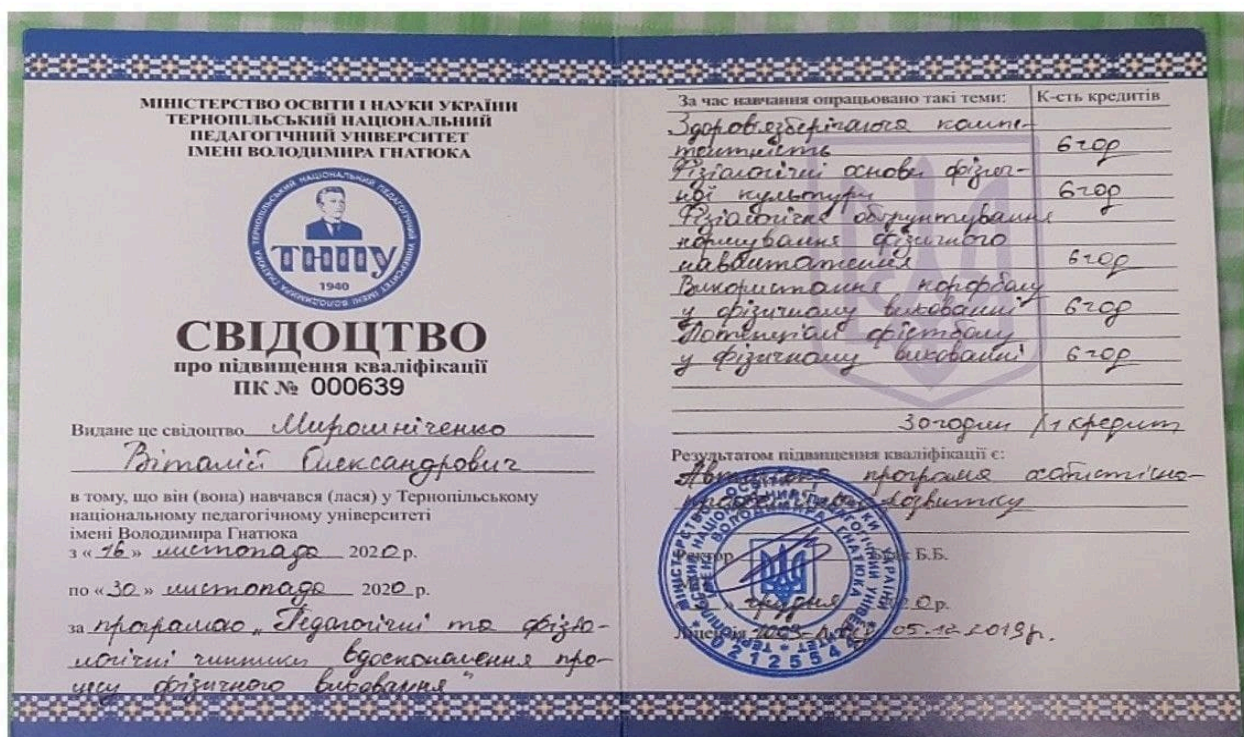 МІНІСТЕРСТВО ОСВІТИ І НАУКИ УКРАЇНИ
ТЕРНОПІЛЬСЬКИЙ НАЦІОНАЛЬНИЙ
ПЕДАГОГІЧНИЙ УНІВЕРСИТЕТ
ІМЕНІ ВОЛОДИМИРА ГНАТЮКА
ТЕРНОПІЛЬСЬКИЙ НАЦІОНАЛЬНИЙ ПЕДАГОГІЧНИЙ УНІВЕРСИТЕТ ІМЕНІ ВОЛОДИМИРА ГНАТЮКА
ТНПУ
1940
СВІДОЦТВО
про підвищення кваліфікації
ПК № 000639
Видане це свідоцтво Мирошніченко
Віталій Олександрович
в тому, що він (вона) навчався (лася) у Тернопільському
національному педагогічному університеті
імені Володимира Гнатюка
з « 16 » листопада 2020 р.
по « 30 » листопада 2020 р.
за програмою „Педагогічні та фізіо-
логічні чинники вдосконалення про-
цесу фізичного виховання"
За час навчання опрацьовано такі теми: К-сть кредитів
Здоров'язберігаюча компе-
тентність 6 год
Фізіологічні основи фізич-
ної культури 6 год
Фізіологічне обґрунтування
нормування фізичного
навантаження 6 год
Використання корфболу
у фізичному вихованні 6 год
Потенціал фістболу
у фізичному вихованні 6 год
30 годин / 1 кредит
Результатом підвищення кваліфікації є:
програма
розвитку
Ректор Б.Б.
грудня р.
Ліцензія 05.12.2019р.